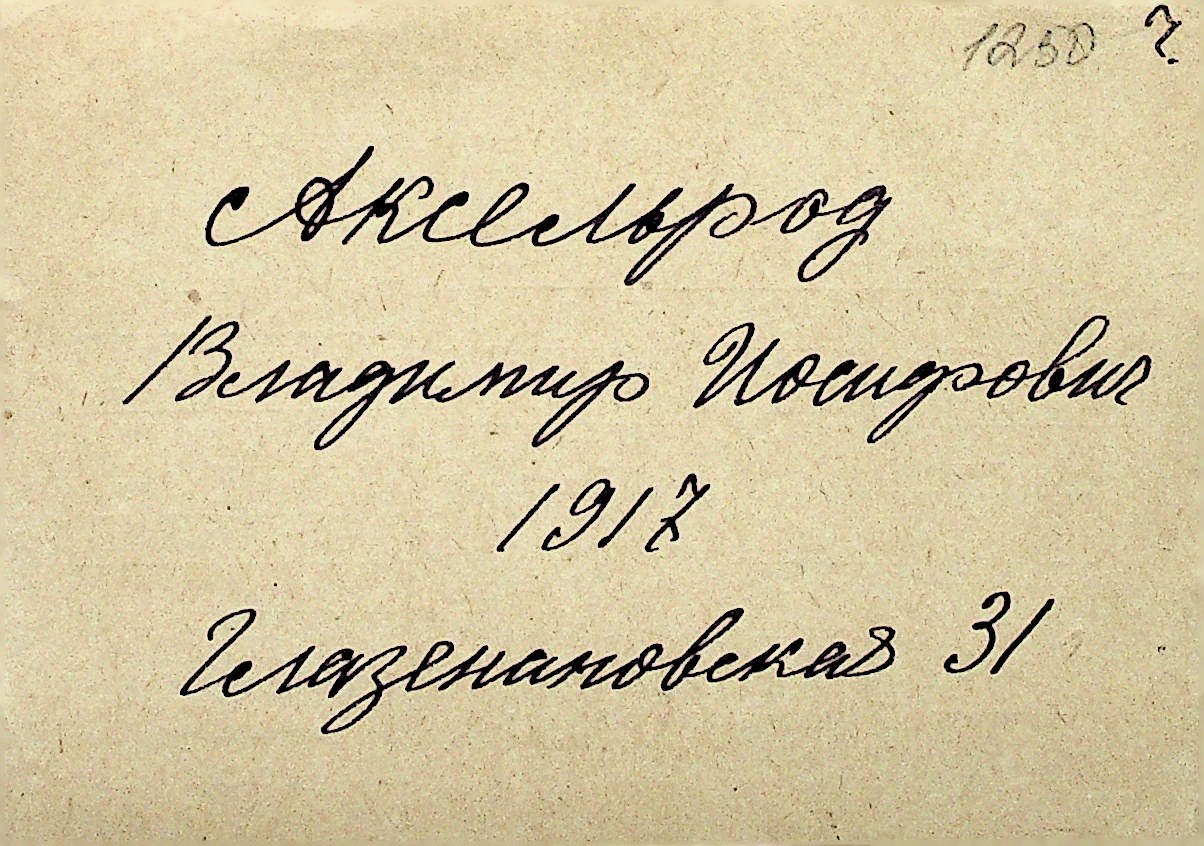 1258 ч.
Аксельрод
Владимир Иосифович
1917
Глазенаповская 31